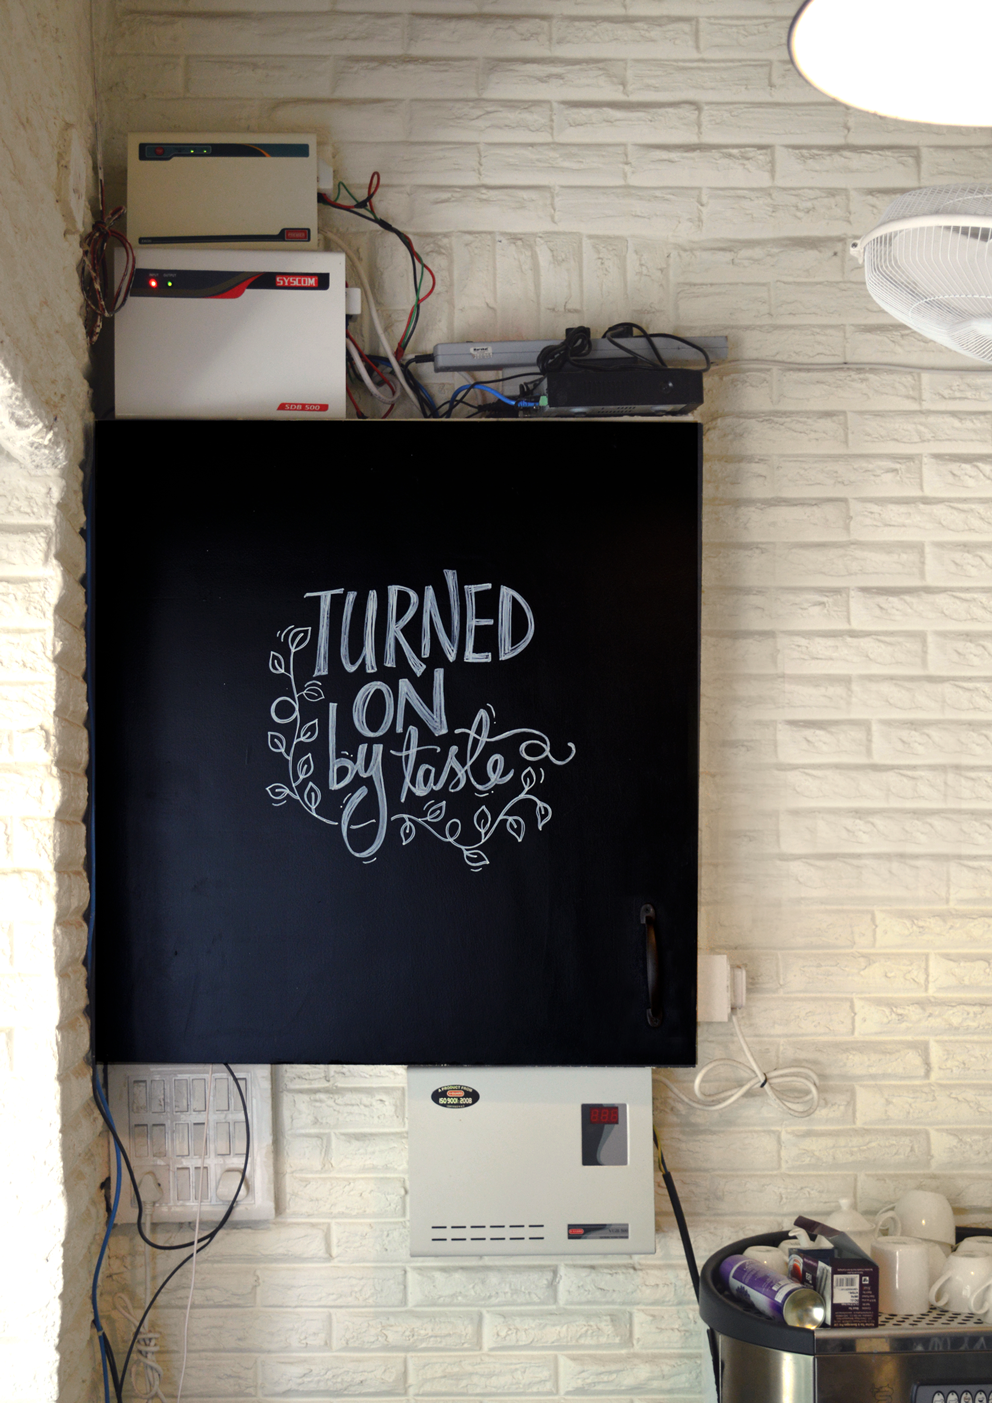 SYSCOM
SDB 500
TURNED
ON
by taste
A PRODUCT FROM
ISO 9001:2008